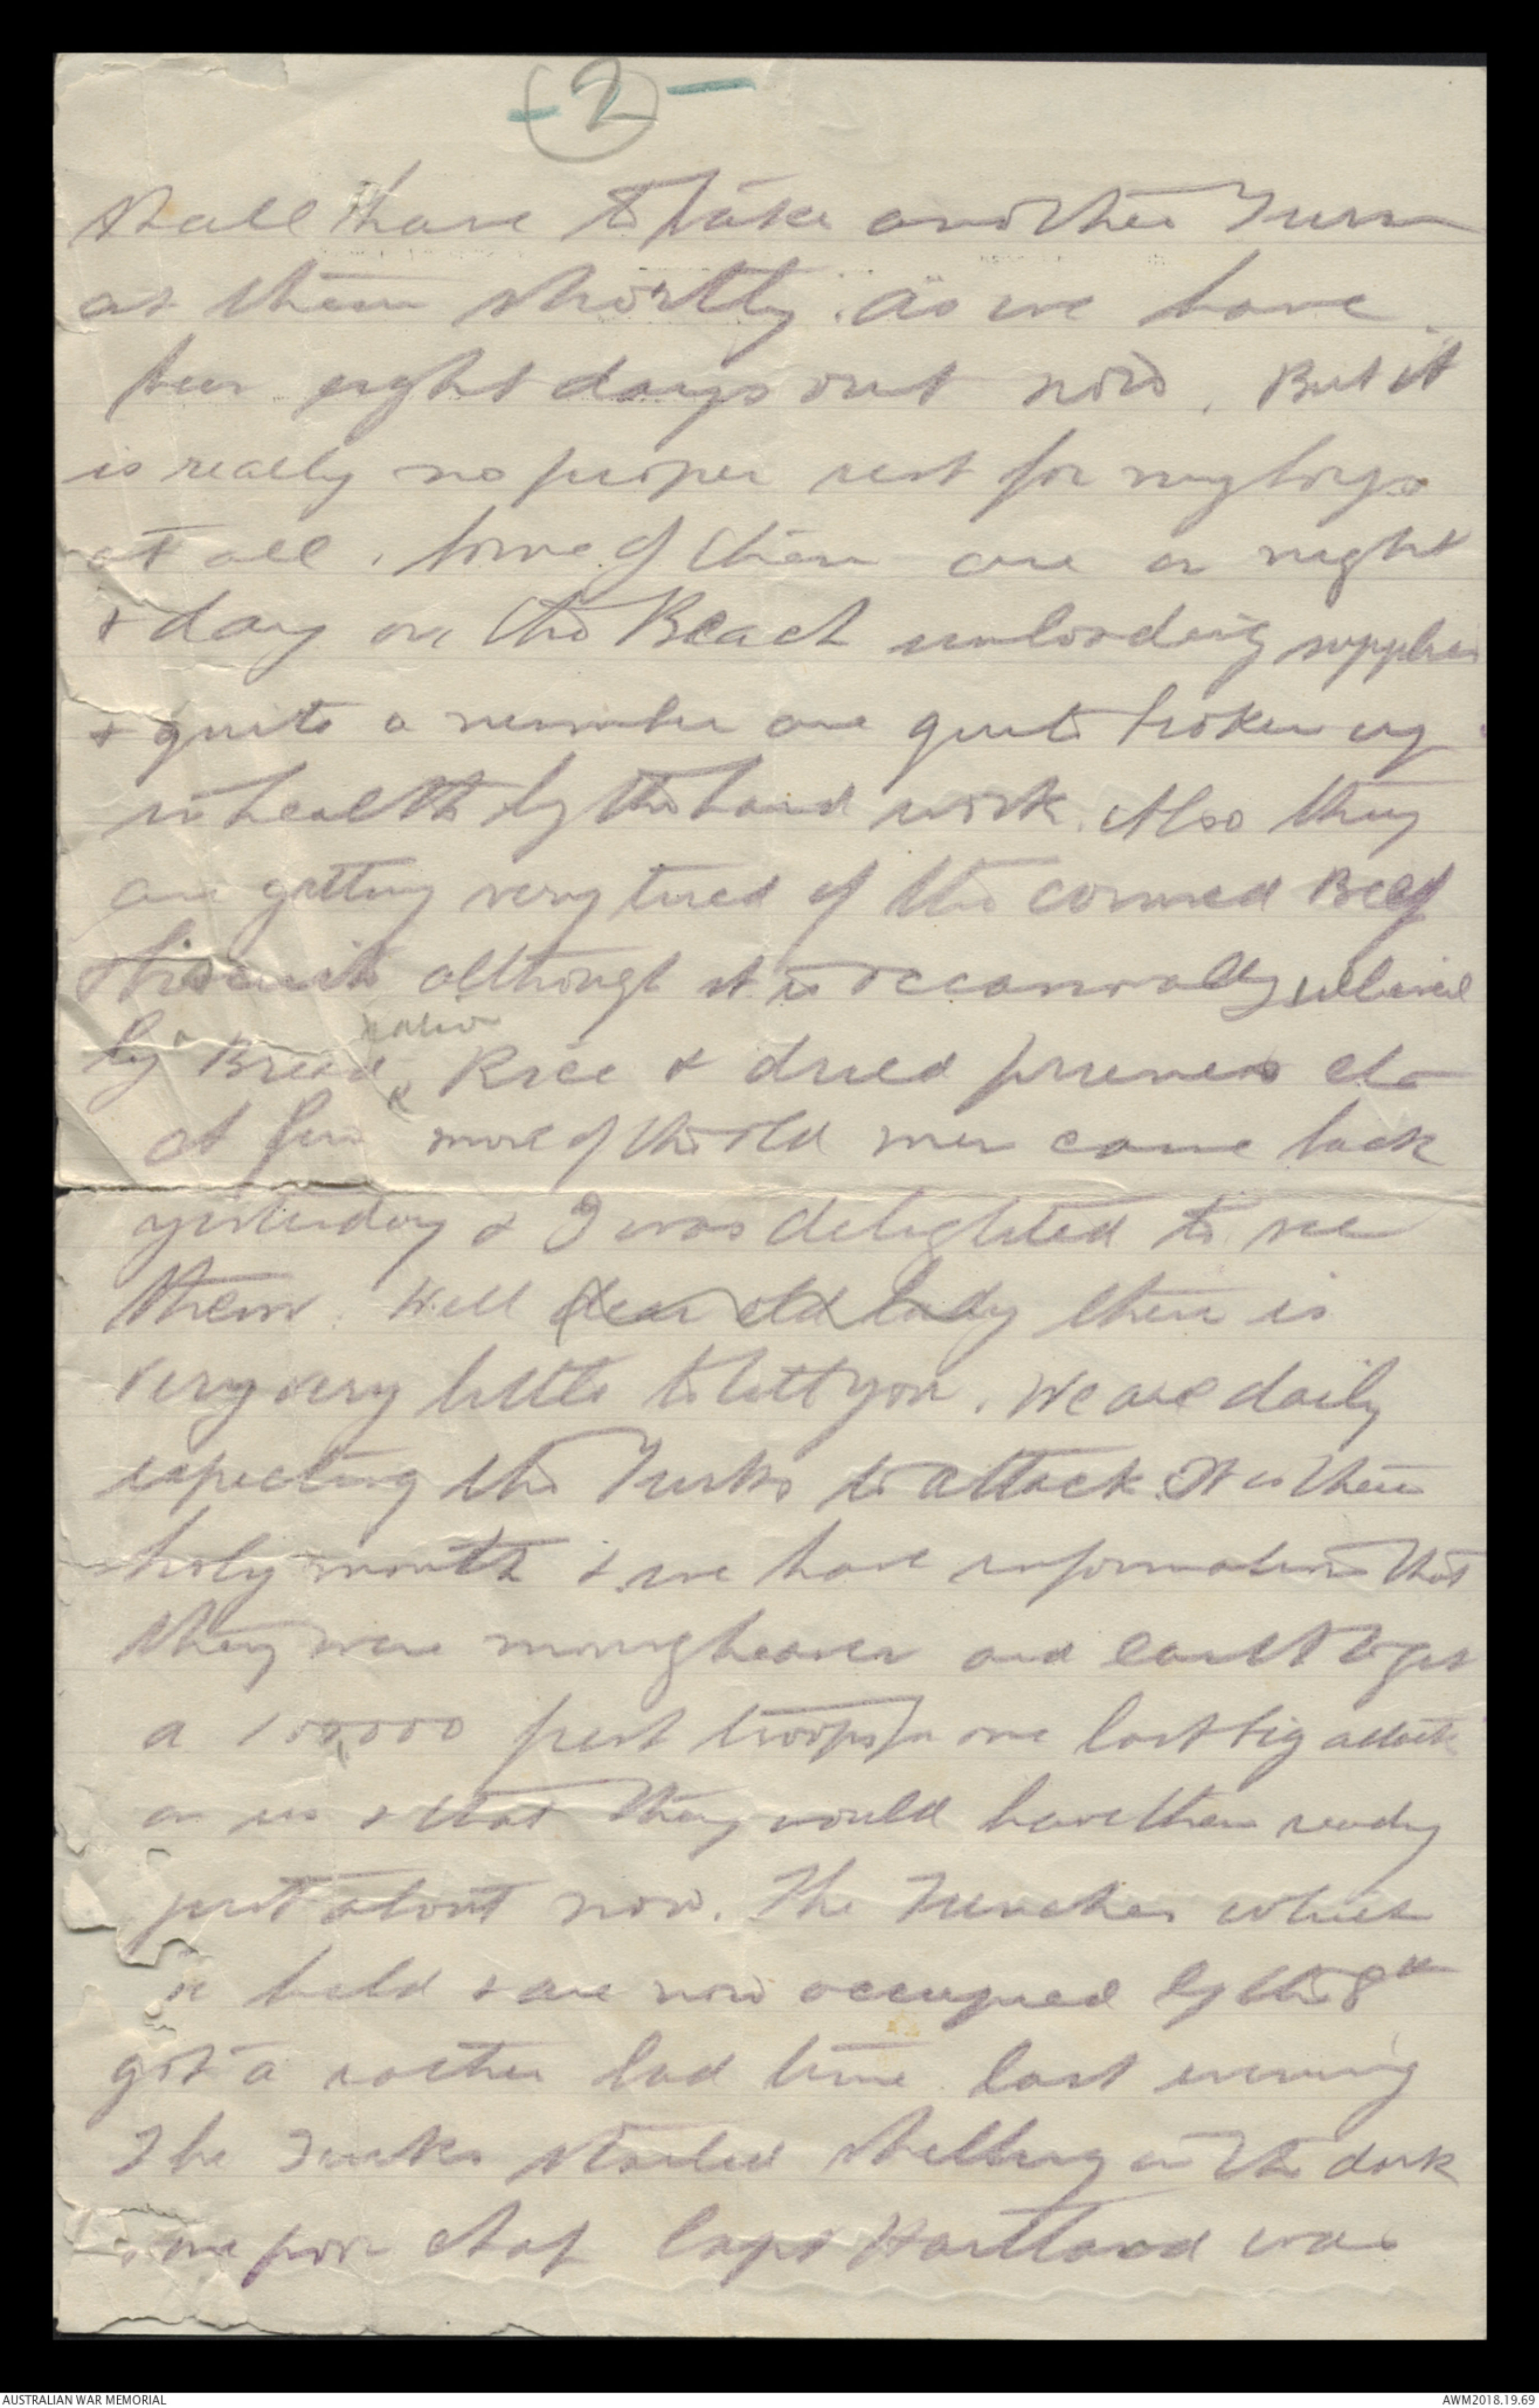 -2-
shall have to take another turn
at them shortly. As we have
been eight days out now. But it
is really no proper rest for my boys
at all. Some of them are on night
& day on the Beach unloading supplies
& quite a number are quite broken up
in health by the hard work. Also they
are getting very tired of the corned Beef
& biscuits although it is occasionally relieved
by Bread, Rice & dried prunes etc
A few more of the old men came back
yesterday & I was delighted to see
them. Well dear old lady there is
very very little to tell you. We are daily
expecting the Turks to attack. It is their
holy month & we have information that
they were moving heaven and earth to get
a 100,000 fresh troops for one last big attack
on us & that they would have them ready
just about now. The Trenches which
we held & are now occupied by the 8th
got a rather bad time last evening
The Turks started shelling in the dark
& one poor chap Capt Hartland was
AUSTRALIAN WAR MEMORIAL
AWM2018.19.69